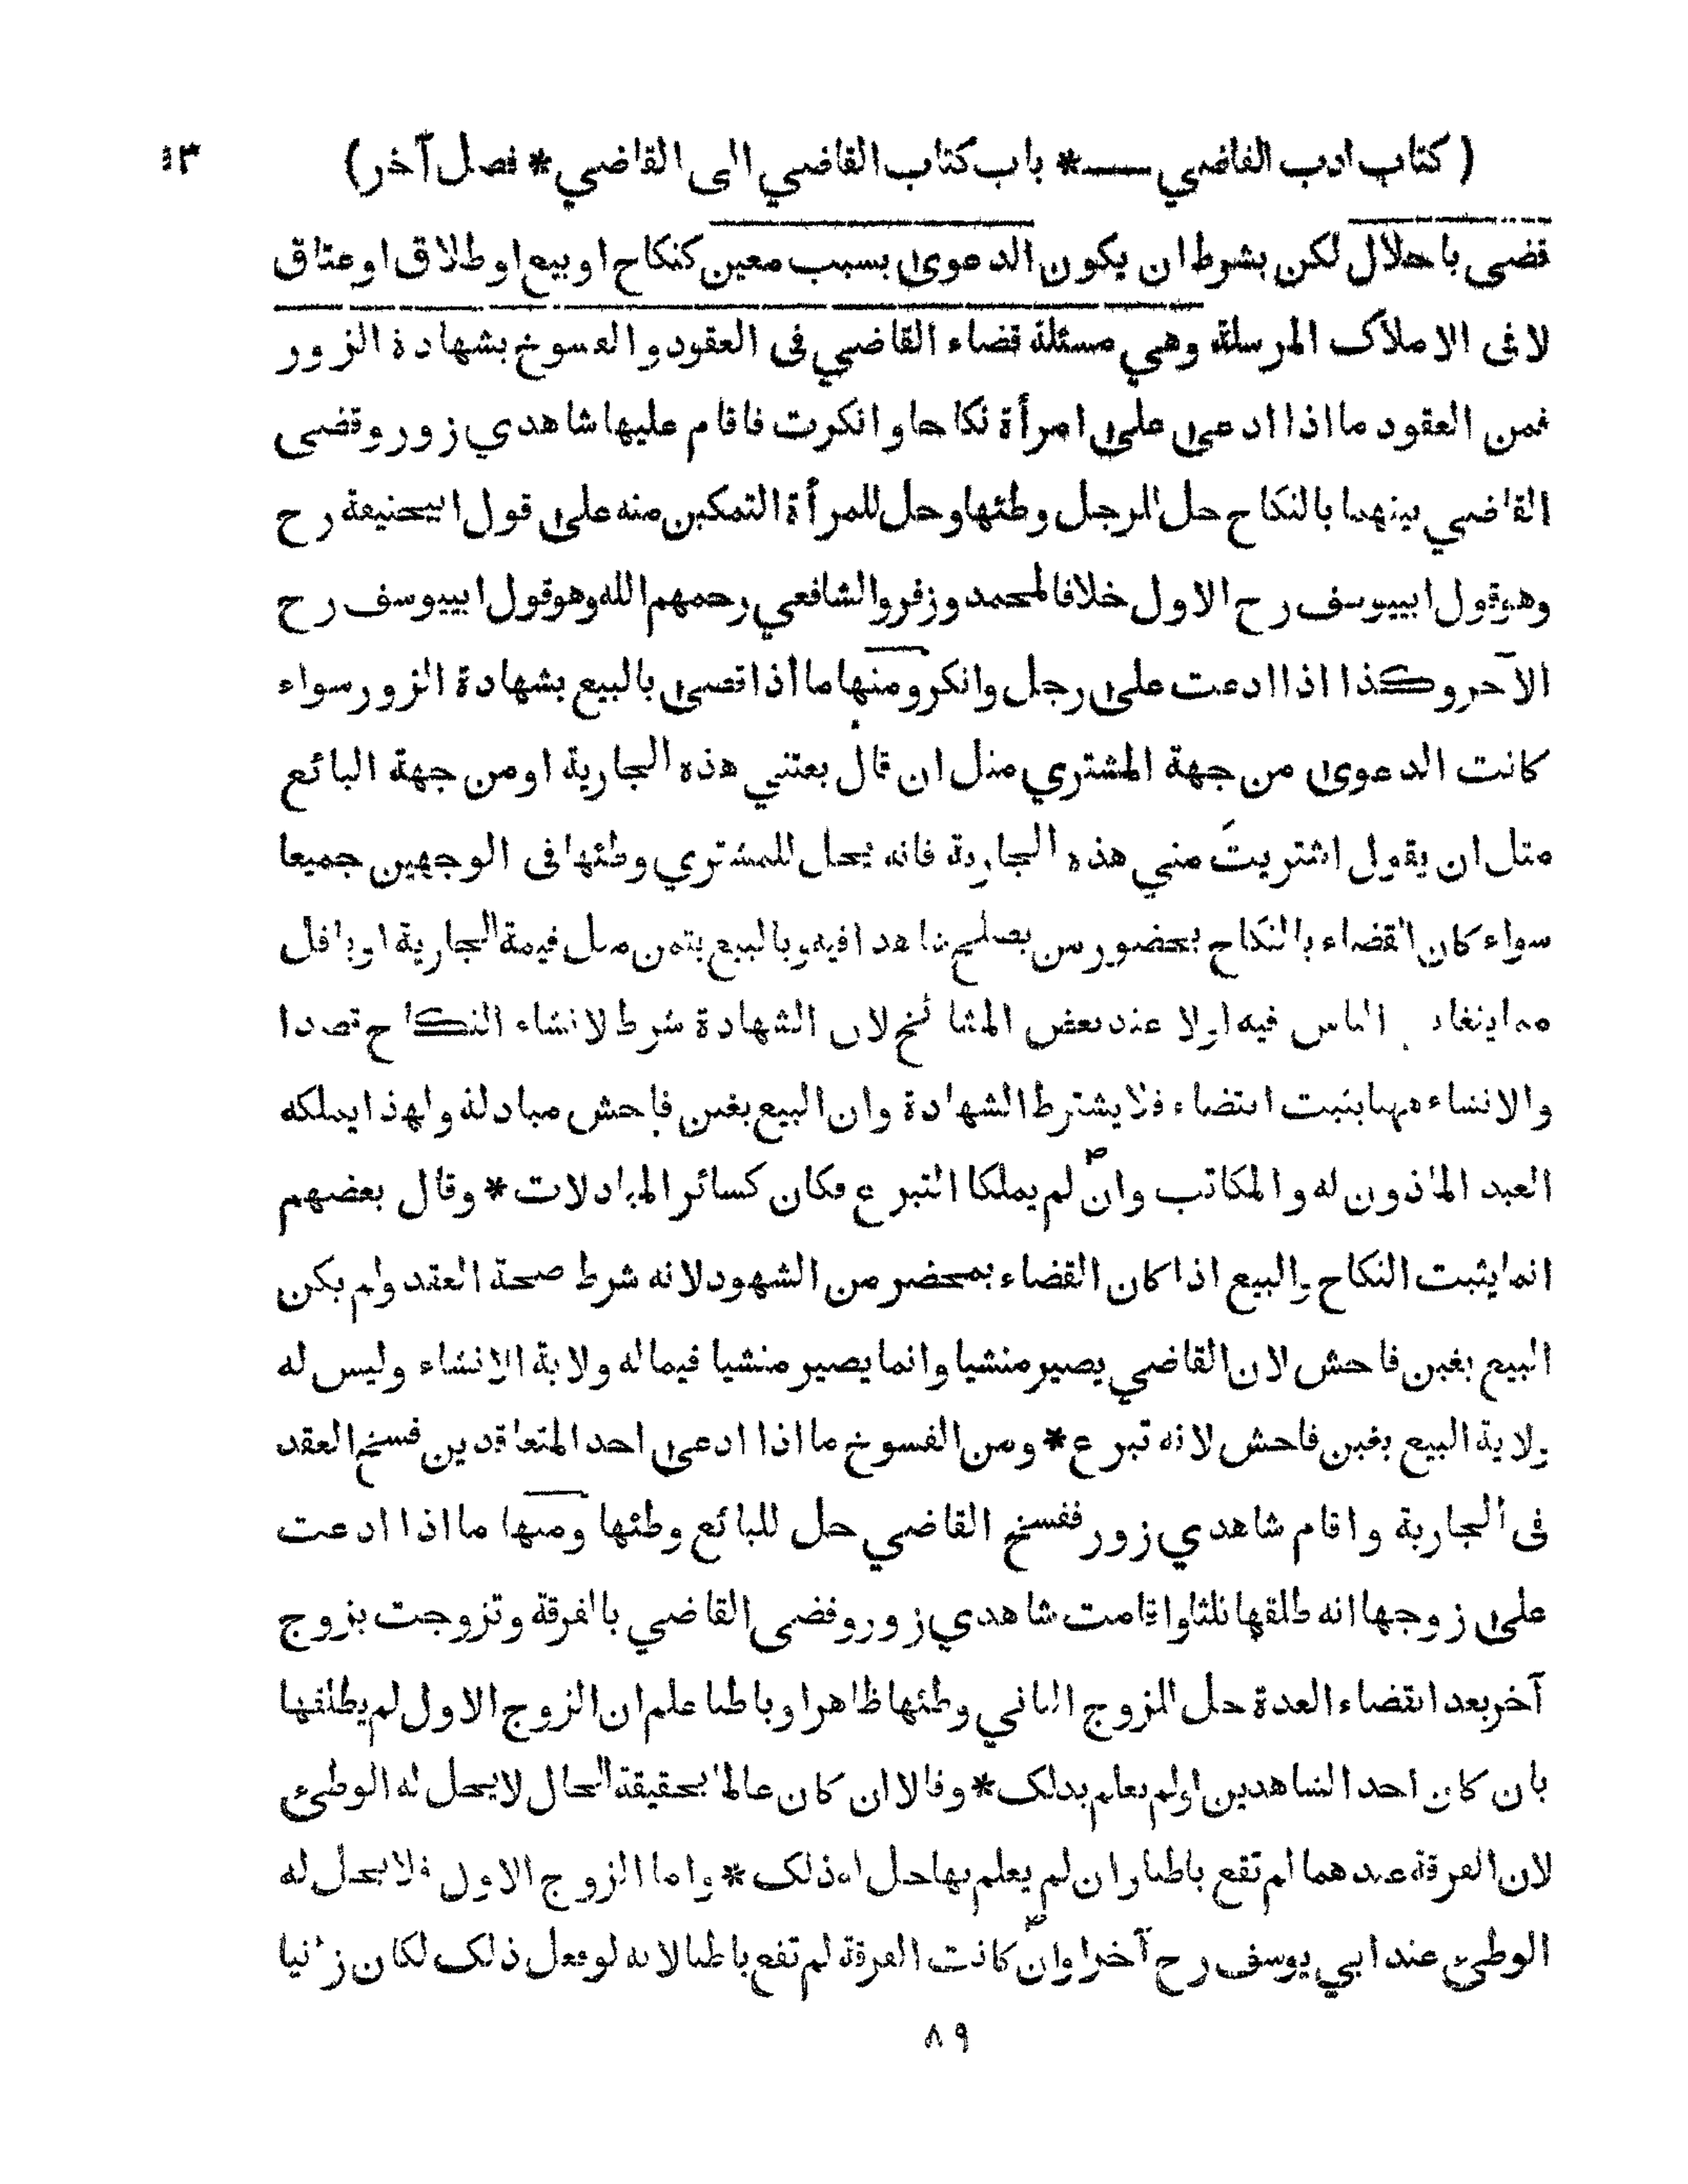 ( كتاب ادب القاضي —* باب كتاب القاضي الى القاضي * فصل آخر )
قضى باحلال لكن بشرط ان يكون الدعوى بسبب معين كنكاح او بيع او طلاق او عتاق
لا فى الاملاك المرسلة وهي مسئلة قضاء القاضي فى العقود والفسوخ بشهادة الزور
فمن العقود ما اذا ادعى على امرأة نكاحا وانكرت فاقام عليها شاهدي زور وقضى
القاضي بينهما بالنكاح حل للرجل وطئها وحل للمرأة التمكين منه على قول ابيحنيفة رح
وهو قول ابييوسف رح الاول خلافا لمحمد وزفر والشافعي رحمهم الله وهو قول ابييوسف رح
الآخر وكذا اذا ادعت على رجل وانكر ومنها ما اذا قضى بالبيع بشهادة الزور سواء
كانت الدعوى من جهة المشتري مثل ان قال بعتني هذه الجارية او من جهة البائع
مثل ان يقول اشتريتَ مني هذه الجارية فانه يحل للمشتري وطئها فى الوجهين جميعا
سواء كان القضاء بالنكاح بحضور من يصلح شاهدا فيه وبالبيع بثمن مثل قيمة الجارية او باقل
مما يتغابن الناس فيه اولا عند بعض المشائخ لان الشهادة شرط لانشاء النكاح قصدا
والانشاء ههنا يثبت اقتضاء فلا يشترط الشهادة وان البيع بغبن فاحش مبادلة ولهذا يملكه
العبد الماذون له والمكاتب وان لم يملكا التبرع فكان كسائر المبادلات * وقال بعضهم
انما يثبت النكاح والبيع اذا كان القضاء بمحضر من الشهود لانه شرط صحة العقد ولم يكن
البيع بغبن فاحش لان القاضي يصير منشيا وانما يصير منشيا فيما له ولاية الانشاء وليس له
ولاية البيع بغبن فاحش لانه تبرع * ومن الفسوخ ما اذا ادعى احد المتعاقدين فسخ العقد
فى الجارية واقام شاهدي زور ففسخ القاضي حل للبائع وطئها ومنها ما اذا ادعت
على زوجها انه طلقها ثلثا واقامت شاهدي زور وقضى القاضي بالفرقة وتزوجت بزوج
آخر بعد انقضاء العدة حل للزوج الثاني وطئها ظاهرا وباطنا علم ان الزوج الاول لم يطلقها
بان كان احد الشاهدين اولم يعلم بذلك * وقالا ان كان عالما بحقيقة الحال لا يحل له الوطئ
لان الفرقة عندهما لم تقع باطنا وان لم يعلم بها حل له ذلك * واما الزوج الاول فلا يحل له
الوطئ عند ابي يوسف رح آخرا وان كانت الفرقة لم تقع باطنا لانه لو فعل ذلك لكان زانيا
٨٩